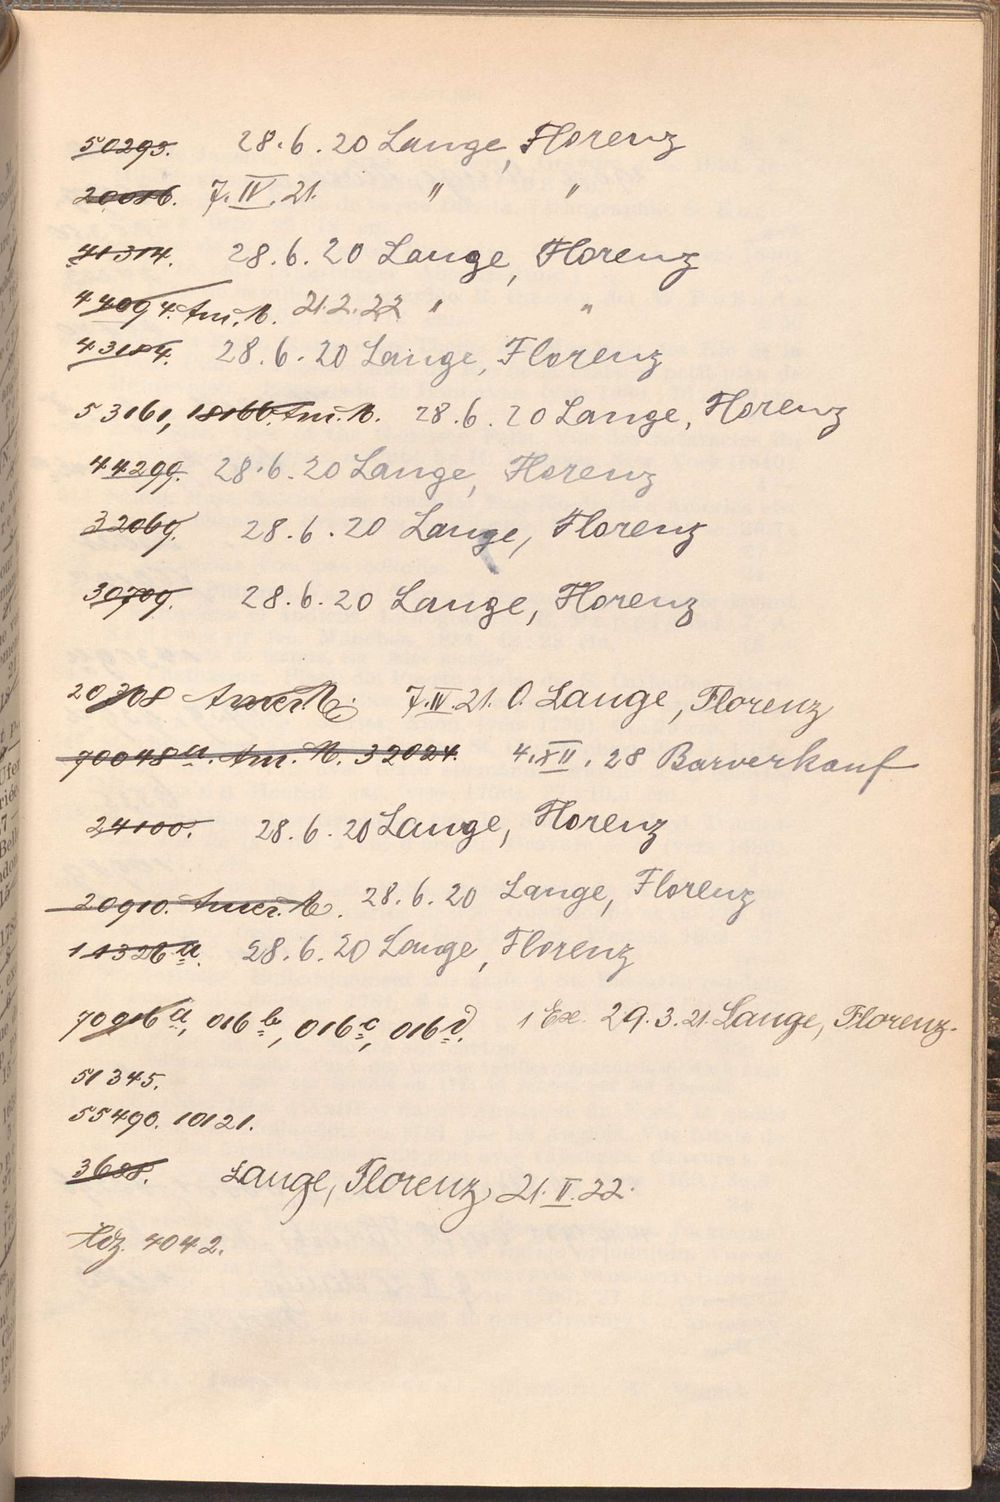 50295. 28.6.20 Lange, Florenz
20086. 7.IV.21. " "
41314. 28.6.20 Lange, Florenz
44094. Am. N. 21.2.22 " "
43184. 28.6.20 Lange, Florenz
53161, 18166. Am. N. 28.6.20 Lange, Florenz
44299. 28.6.20 Lange, Florenz
32069. 28.6.20 Lange, Florenz
30709. 28.6.20 Lange, Florenz
20308 7.IV.21. O. Lange, Florenz
70048a. Am. N. 32024. 4.XII.28 Barverkauf
24100. 28.6.20 Lange, Florenz
20910. 28.6.20 Lange, Florenz
11326a. 28.6.20 Lange, Florenz
70916a, 016b, 016c, 016d. 1 Ex. 29.3.21 Lange, Florenz.
51345.
55490. 10121.
3688. Lange, Florenz, 21.II.22.
4042.